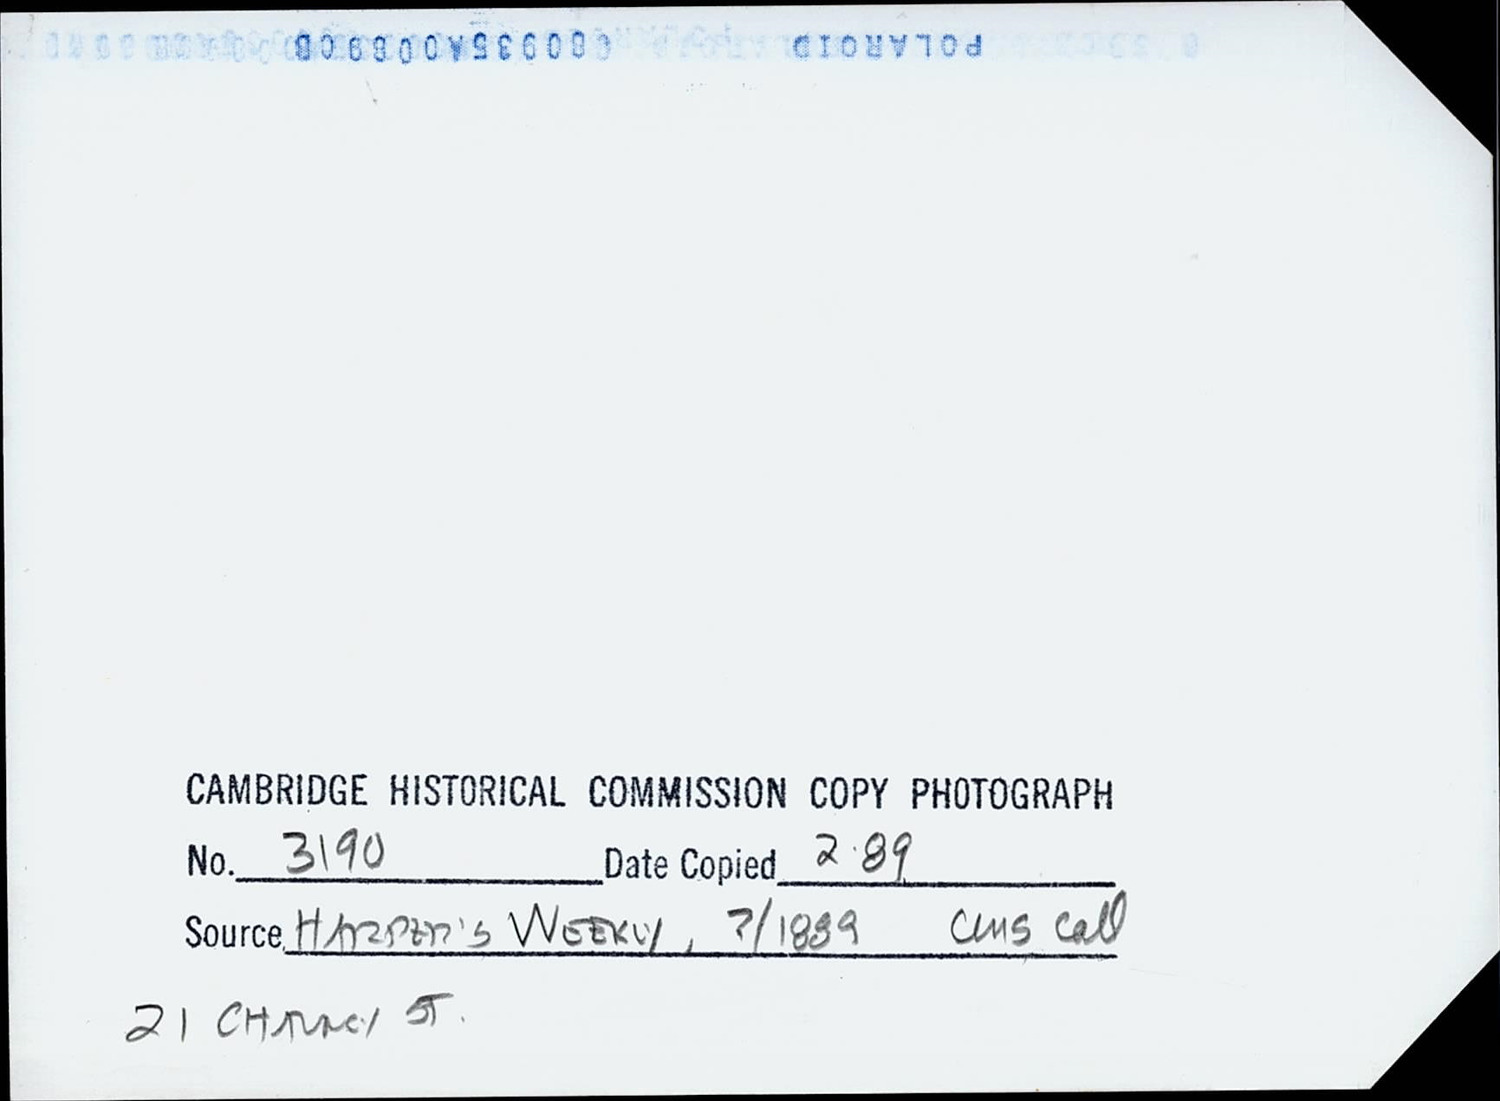 POLAROID 080935A0089CB
CAMBRIDGE HISTORICAL COMMISSION COPY PHOTOGRAPH
No. 3190 Date Copied 2·89
Source HARPER'S WEEKLY, ?/1889 CMS Coll
21 CHAUNCY ST.